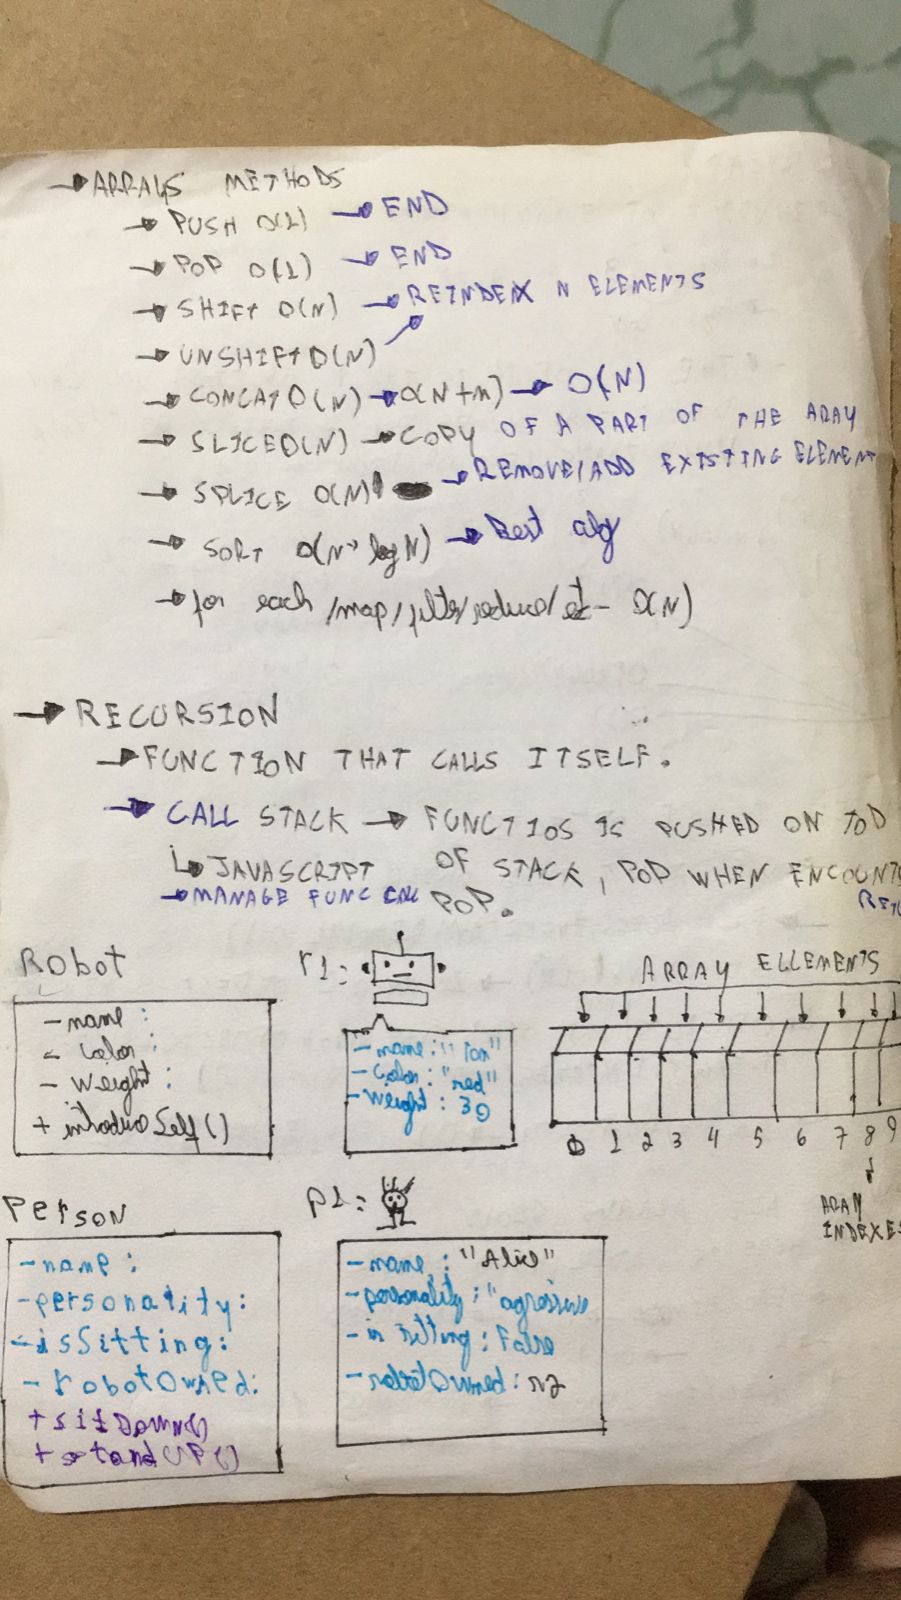 → ARRAYS METHODS
→ PUSH O(1) → END
→ POP O(1) → END
→ SHIFT O(N) → REINDEX N ELEMENTS
→ UNSHIFT O(N)
→ CONCAT O(N) → O(N+M) → O(N)
→ SLICE O(N) → COPY OF A PART OF THE ARAY
→ SPLICE O(N) → REMOVE/ADD EXISTING ELEMENT
→ SORT O(N* log N) → Best alg
→ for each /map/filter/reduce/etc - O(N)
→ RECURSION
→ FUNCTION THAT CALLS ITSELF.
→ CALL STACK → FUNCTIOS IS PUSHED ON TOP
↳ JAVASCRIPT OF STACK, POP WHEN ENCOUNT
→ MANAGE FUNC CALL POP.
Robot
- name :
- color :
- weight :
+ introduceSelf()
r1:
- name : "Tom"
- color : "red"
- weight : 30
ARRAY ELLEMENTS
0 1 2 3 4 5 6 7 8 9
ARAY
INDEXES
Person
- name :
- personality:
- isSitting:
- robotOwned:
+ sitDown()
+ standUP()
p1:
- name : "Alice"
- personality : "agressive
- is sitting : False
- robotOwned : r2